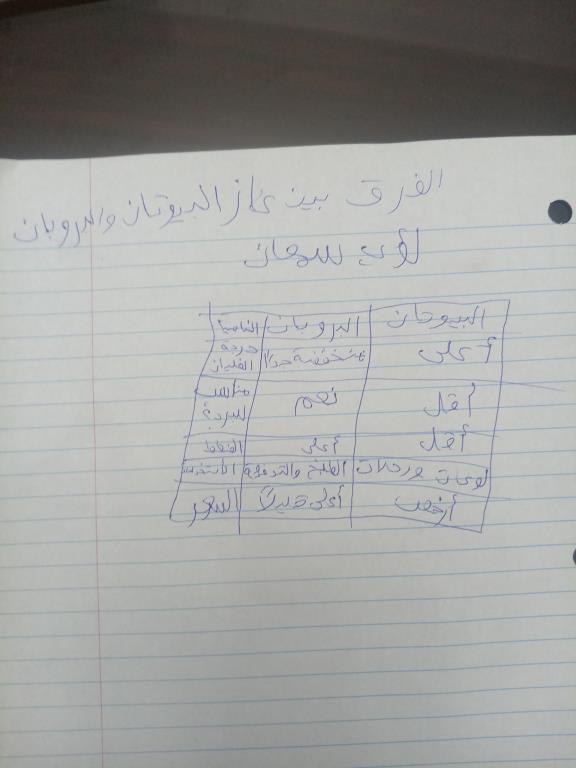 الفرق بين غاز البيوتان والبروبان
لؤي سمعان
البيوتان البروبان الخاصية
أعلى منخفضة جداً درجة الغليان
أقل نعم مناسب للبرودة
أقل أعلى الضغط
ولاعات ورحلات الطبخ والتدفئة
أرخص أعلى قليلاً السعر